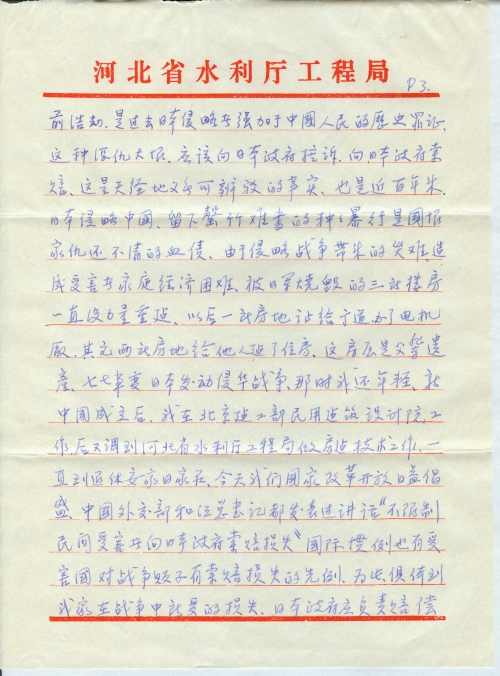 河北省水利厅工程局
P3.
前浩劫.是过去日本侵略者强加于中國人民的歷史罪证.
这种深仇大恨.应该向日本政府控诉.向日本政府索
赔.这是天经地义无可辩驳的事实.也是近百年来.
日本侵略中国.留下罄竹难书的种々暴行是國恨
家仇还不清的血债.由于侵略战争带来的災难造
成受害者家庭经济困难.被日军烧毁的三处楼房
一直没力量重建.以后一处房地让给了道办了电机
厰.其它两处房地给他人建了住房.这房产是父辈遗
產.七七事变日本发动侵华战争.那时我还年轻.新
中国成立后.我在北京建工部民用建筑设计院工
作后又调到河北省水利厅工程局做房建技术工作.一
直到退休安家日家石.今天我们國家改革开放日益倡
盛.中國外交部和江总书记都发表过讲话"不限制
民间受害者向日本政府索赔损失"国际惯例也有受
害國对战争贩子有索赔损失的先例.为此俱体到
我家在战争中所受的损失.日本政府应负责赔偿